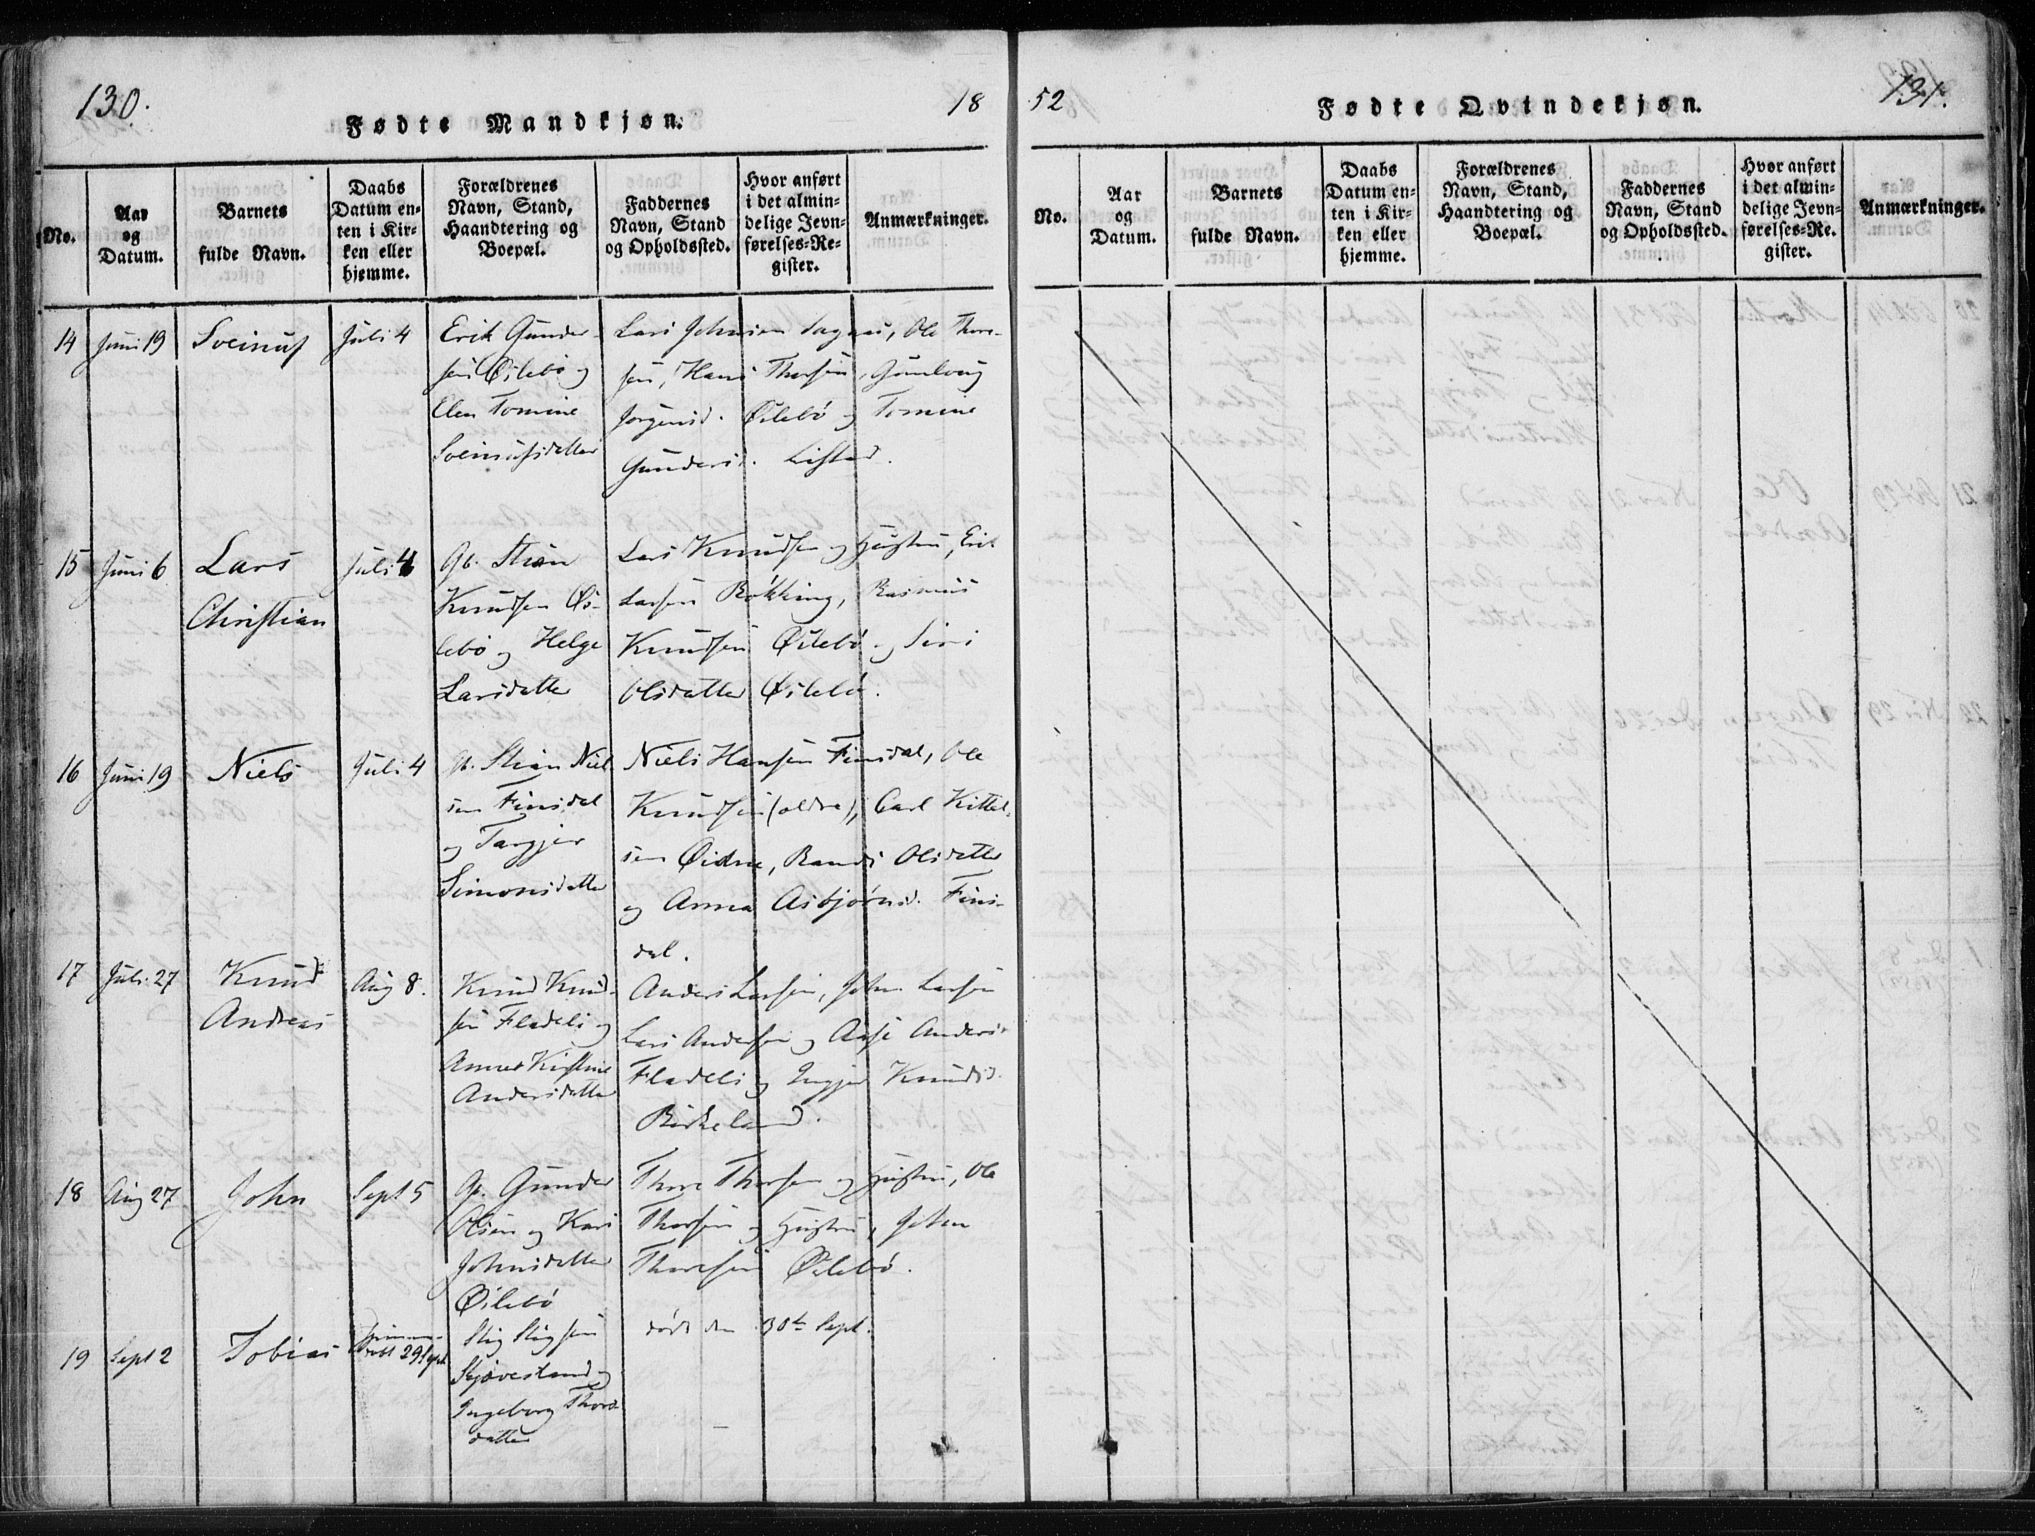 130.
18
Fødte Mandkjøn.
No.
Aar
og
Datum.
Barnets
fulde Navn.
Daabs
Datum en-
ten i Kir-
ken eller
hjemme.
Forældrenes
Navn, Stand,
Haandtering og
Boepæl.
Faddernes
Navn, Stand
og Opholdssted.
Hvor anført
i det almin-
delige Jevn-
førelses-Re-
gister.
Anmærkninger.
14 Juni 19 Sveinuf Juli 4
Erik Gunder-
sen Øilebø og
Elen Tomine
Sveinufsdatter
Lars Johnsen Ole Thore-
sen, Hans Thorsen, Gunlaug
Jorgensd. Øilebø og Tomine
Gundersd. Liftad.
15 Juni 6 Lars
Christian
Juli 4
Gb. Stian
Knudsen Øi-
lebø og Helge
Larsdatter
Lars Knudsen og Hustru, Erik
Larsen Røkking, Rasmus
Knudsen Øilebø og Siri
Olsdatter Øilebø.
16 Juni 19 Niels Juli 4
Gb. Stian Niel-
sen Finsdal
og Targjer
Simonsdatter
Niels Hansen Finsdal, Ole
Knudsen (ældre), Carl Kittel-
sen Øidne, Randi Olsdatter
og Anna Asbjørnsd. Fins-
dal.
17 Juli 27 Knud
Andreas
Aug 8.
Knud Knud-
sen Fladeli og
Anne Kistine
Andersdatter
Anders Larsen, John Larsen
Lars Andersen og Aase Anders-
Fladeli og Ingjer Knudsd.
Birkeland.
18 Aug 27 John Sept 5
Gb. Gunder
Olsen og Kari
Johnsdatter
Øilebø
Thore Thorsen og Hustru, Ole
Thorsen og Hustru, John
Thoresen Øilebø.
19 Sept 2 Tobias
29 Sept
Stig Stigsen
Skjævesland og
Ingeborg Thors-
datter
døde den 30te Sept.
52
131.
Fødte Qvindekjøn.
No.
Aar
og
Datum.
Barnets
fulde Navn.
Daabs
Datum en-
ten i Kir-
ken eller
hjemme.
Forældrenes
Navn, Stand,
Haandtering og
Boepæl.
Faddernes
Navn, Stand
og Opholdssted.
Hvor anført
i det almin-
delige Jevn-
førelses-Re-
gister.
Anmærkninger.